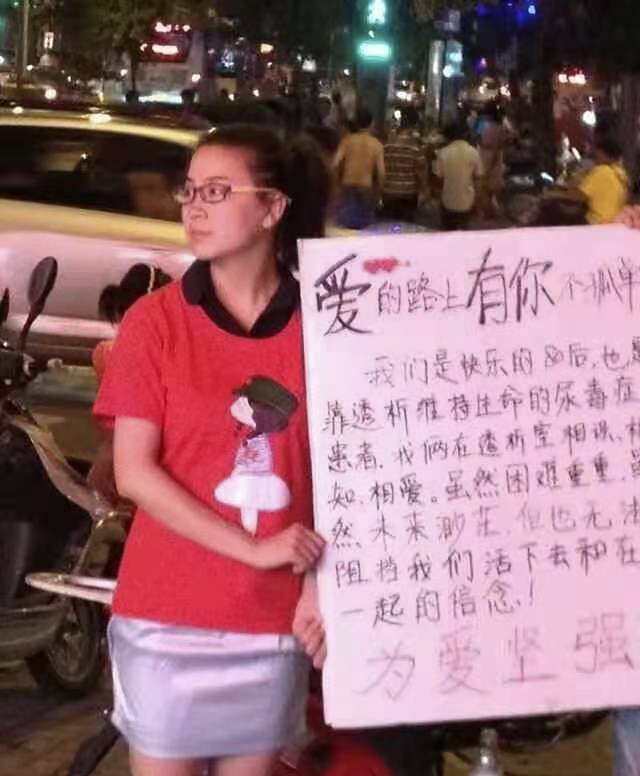 爱的路上有你不孤单
我们是快乐的80后,也是
靠透析维持生命的尿毒症
患者,我俩在透析室相识、相
知、相爱。虽然困难重重,虽
然未来渺茫,但也无法
阻挡我们活下去和在
一起的信念!
为爱坚强